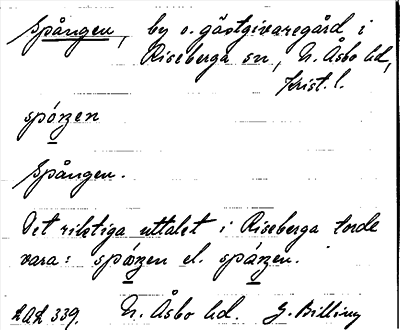 Spången, by o. gästgivaregård i
Riseberga sn, N. Åsbo hd,
Krist. l.
spóŋen
Spången.
Det riktiga uttalet i Riseberga torde
vara: spóŋen el. spáŋen.
LAL 339. N. Åsbo hd. G. Billing